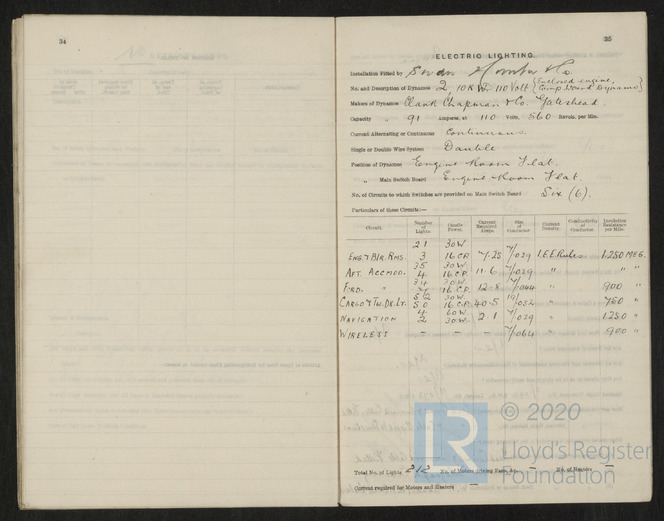 34
35
ELECTRIC LIGHTING.
Installation Fitted by Swan Hunter & Co.
No. and Description of Dynamos 2, 10 K.W. 110 Volt {Enclosed engine, Comp Wound Dynamo}
Makers of Dynamos Clark Chapman & Co. Gateshead.
Capacity „ 91 Amperes, at 110 Volts, 560 Revols. per Min.
Current Alternating or Continuous Continuous
Single or Double Wire System Double
Position of Dynamos Engine Room Flat.
„ Main Switch Board Engine Room Flat.
No. of Circuits to which Switches are provided on Main Switch Board Six (6).
Particulars of these Circuits:—
Circuit. Number of Lights. Candle Power. Current Required Amps. Size of Conductor. Current Density. Conductivity of Conductor. Insulation Resistance per Mile.
21 30W.
ENG. & BLR. RMS. 3 16 C.P. 7.25 7/029 I.E.E. Rules 1250 MEG.
35 30W
AFT. ACCMOD. 4 16 C.P. 11.6 7/029 " " "
34 30W.
FORD. " 16 C.P. 12.8 7/044 " 900 "
30W.
CARGO & TW. DK. LT. 50 16 C.P. 40.5 19/052 " 750 "
4 60W.
NAVIGATION 2 30W. 2.1 7/029 " 1250 "
WIRELESS – – – 7/064 " 900 "
Total No. of Lights 212 No. of Motors driving Fans, &c. – No. of Heaters –
Current required for Motors and Heaters –
© 2020
LR
Lloyd's Register
Foundation